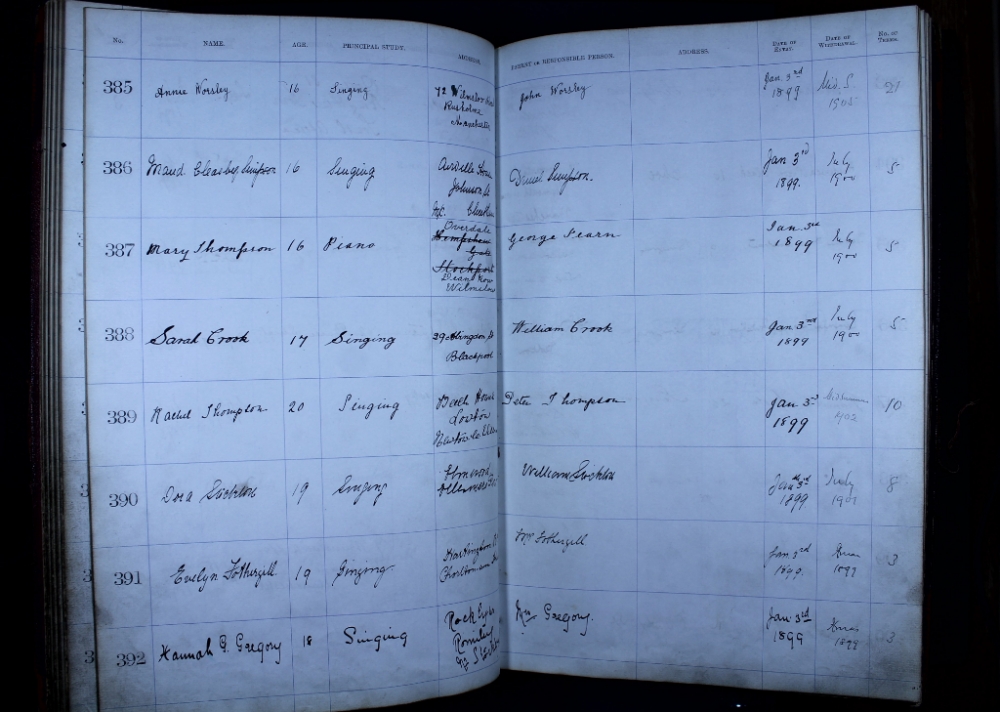 No. NAME. AGE. PRINCIPAL STUDY. ADDRESS. PARENT OR RESPONSIBLE PERSON. ADDRESS. DATE OF ENTRY. DATE OF WITHDRAWAL. No. OF TERMS.
385 Annie Worsley 16 Singing 72 Wilmslow Road John Worsley Jan 3rd Mids. 21
Rusholme 1899
Manchester
386 Maud Cleasby Simpson 16 Singing Daniel Simpson. Jan 3rd July 5
Johnson St 1899. 1900
387 Mary Thompson 16 Piano Overdale George Fearn Jan. 3rd July 5
Gate 1899 1900
Stockport
Dean Row
Wilmslow
388 Sarah Crook 17 Singing 29 Abingdon St William Crook Jan 3rd July 5
Blackpool 1899 1900
389 Rachel Thompson 20 Singing Beech House Peter Thompson Jan 3rd Midsummer 10
Lowton 1899 1902
Newton-le-
390 Dora 19 Singing William Jan 3rd July 8
1899
391 Evelyn Fothergill 19 Singing Mr Fothergill Jan 3rd Xmas 3
Chorlton-cum- 1899. 1899
392 Hannah G. Gregory 18 Singing Mrs Gregory. Jan 3rd Xmas 3
Romiley 1899 1899